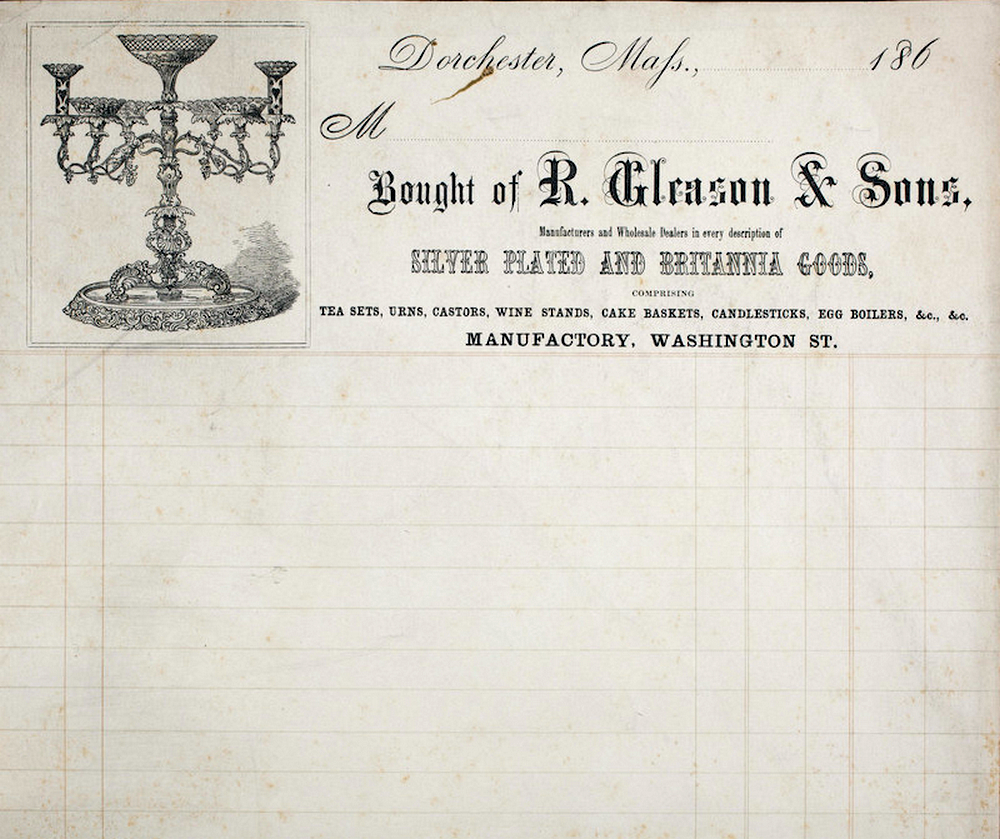 Dorchester, Maſs., 186
M
Bought of R. Gleason & Sons,
Manufacturers and Wholesale Dealers in every description of
SILVER PLATED AND BRITANNIA GOODS,
COMPRISING
TEA SETS, URNS, CASTORS, WINE STANDS, CAKE BASKETS, CANDLESTICKS, EGG BOILERS, &c., &c.
MANUFACTORY, WASHINGTON ST.